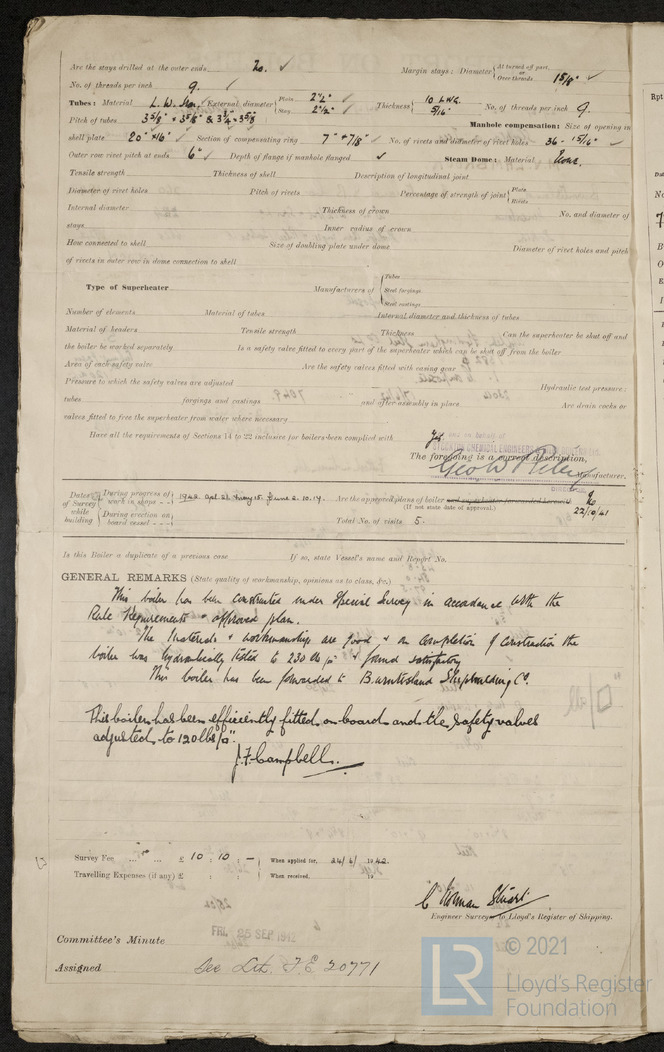 Are the stays drilled at the outer ends No. ✓ Margin stays: Diameter { At turned off part, or Over threads 1 5/8" ✓
No. of threads per inch 9. ✓
Tubes: Material L. W. Iron External diameter { Plain 2½" ✓ Stay 2½" ✓ Thickness { 10 L.S.G. 5/16" No. of threads per inch 9.
Pitch of tubes 3 5/8" × 3 5/8" & 3¾" × 3 5/8 Manhole compensation: Size of opening in
shell plate 20" × 16" ✓ Section of compensating ring 7" × 7/8" ✓ No. of rivets and diameter of rivet holes 36 - 15/16" ✓
Outer row rivet pitch at ends 6" ✓ Depth of flange if manhole flanged ✓ Steam Dome: Material None.
Tensile strength Thickness of shell Description of longitudinal joint
Diameter of rivet holes Pitch of rivets Percentage of strength of joint { Plate Rivets
Internal diameter Thickness of crown No. and diameter of
stays Inner radius of crown
How connected to shell Size of doubling plate under dome Diameter of rivet holes and pitch
of rivets in outer row in dome connection to shell
Type of Superheater Manufacturers of { Tubes Steel forgings Steel castings
Number of elements Material of tubes Internal diameter and thickness of tubes
Material of headers Tensile strength Thickness Can the superheater be shut off and
the boiler be worked separately Is a safety valve fitted to every part of the superheater which can be shut off from the boiler
Area of each safety valve Are the safety valves fitted with easing gear
Pressure to which the safety valves are adjusted Hydraulic test pressure:
tubes forgings and castings and after assembly in place Are drain cocks or
valves fitted to free the superheater from water where necessary
Have all the requirements of Sections 14 to 22 inclusive for boilers been complied with Yes.
The foregoing is a correct description,
Manufacturer.
Dates of Survey while building { During progress of work in shops - - 1942. Apl. 21. May 15. June 2. 10. 19. Are the approved plans of boiler and superheater forwarded herewith No
(If not state date of approval.) 22/10/41
During erection on board vessel - - - Total No. of visits 5.
Is this Boiler a duplicate of a previous case If so, state Vessel's name and Report No.
GENERAL REMARKS (State quality of workmanship, opinions as to class, &c.)
This boiler has been constructed under Special Survey in accordance with the
Rule Requirements & approved plan.
The Materials & workmanship are good & on completion of construction the
boiler was hydraulically tested to 230 lb/□" & found satisfactory
This boiler has been forwarded to Burntisland Shipbuilding Co.
This boiler has been efficiently fitted on board and the safety valves
adjusted to 120 lbs/□".
J. F. Campbell.
Survey Fee ... ... £ 10 : 10 : – When applied for, 24/6/1942.
Travelling Expenses (if any) £ : : When received, 19
C Norman Stuart
Engineer Surveyor to Lloyd's Register of Shipping.
FRI. 25 SEP 1942
Committee's Minute
Assigned See Lth. F.E 20771
LR © 2021
Lloyd's Register
Foundation